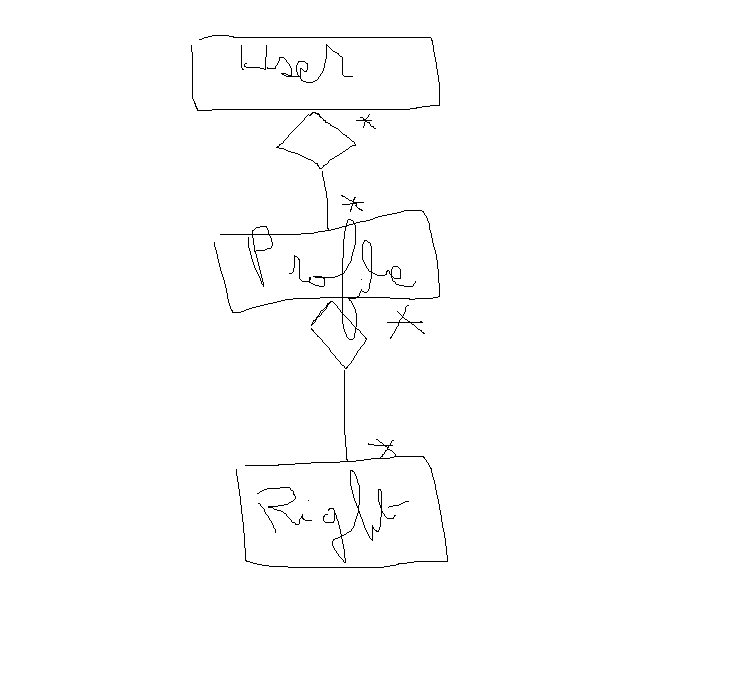 User
*
*
Profile
*
*
Right